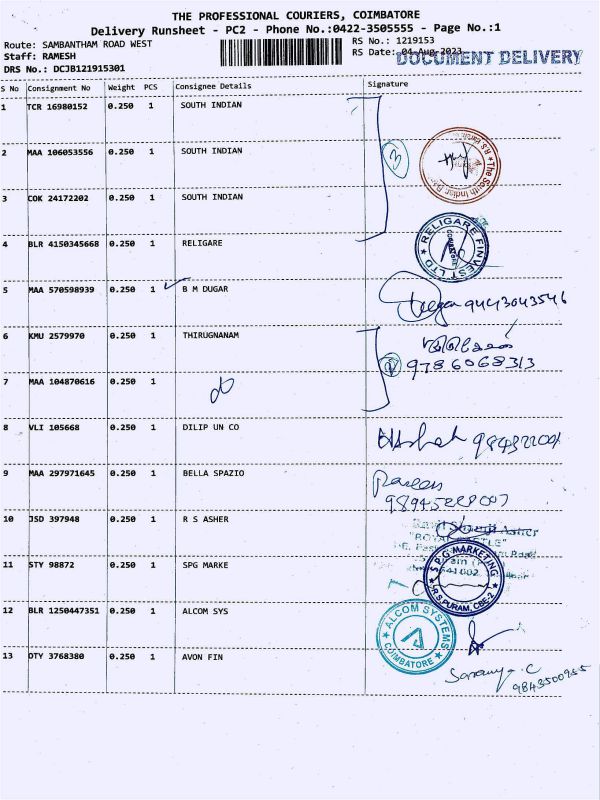 THE PROFESSIONAL COURIERS, COIMBATORE
Delivery Runsheet - PC2 - Phone No.:0422-3505555 - Page No.:1
Route: SAMBANTHAM ROAD WEST
RS No.: 1219153
Staff: RAMESH
RS Date: 04-Aug-2023
DOCUMENT DELIVERY
DRS No.: DCJB121915301
S No Consignment No Weight PCS Consignee Details Signature
1 TCR 16980152 0.250 1 SOUTH INDIAN
2 MAA 106053556 0.250 1 SOUTH INDIAN
3
3 COK 24172202 0.250 1 SOUTH INDIAN
4 BLR 4150345668 0.250 1 RELIGARE
RELIGARE FINVEST LTD
COIMBATORE
5 MAA 570598939 0.250 1 B M DUGAR
9443043546
6 KMU 2579970 0.250 1 THIRUGNANAM
9786068313
2
7 MAA 104870616 0.250 1
8 VLI 105668 0.250 1 DILIP UN CO
9 MAA 297971645 0.250 1 BELLA SPAZIO
10 JSD 397948 0.250 1 R S ASHER
11 STY 98872 0.250 1 SPG MARKE
S P G MARKETING
R.S PURAM, CBE-2
12 BLR 1250447351 0.250 1 ALCOM SYS
ALCOM SYSTEMS
COIMBATORE
13 OTY 3768380 0.250 1 AVON FIN
Saranya. C